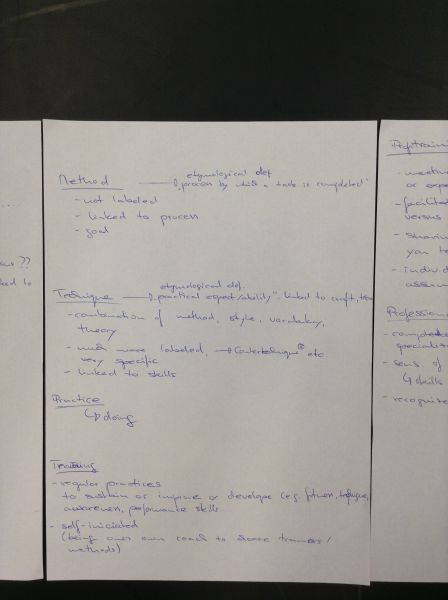 Method → etymological def.
"process by which a task is completed"
- not labeled
- linked to process
- goal
Technique → etymological def.
"practical aspect/ability" linked to craft,
- combination of method, style, vocabulary,
theory
- much more labeled, → Countertechnique® etc
very specific
- linked to skills
Practice
↳ doing
Training
- regular practices
to sustain or improve or develop (e.g. fitness, technique,
awareness, performance skills
- self-iniciated
(being ones own coach to some trainers/
methods)
...
??
to
- meeting
or
- facilitat
versus
- sharing
you
- individ
Profession
-
specialis
- sens of
↳ skills
- recognize